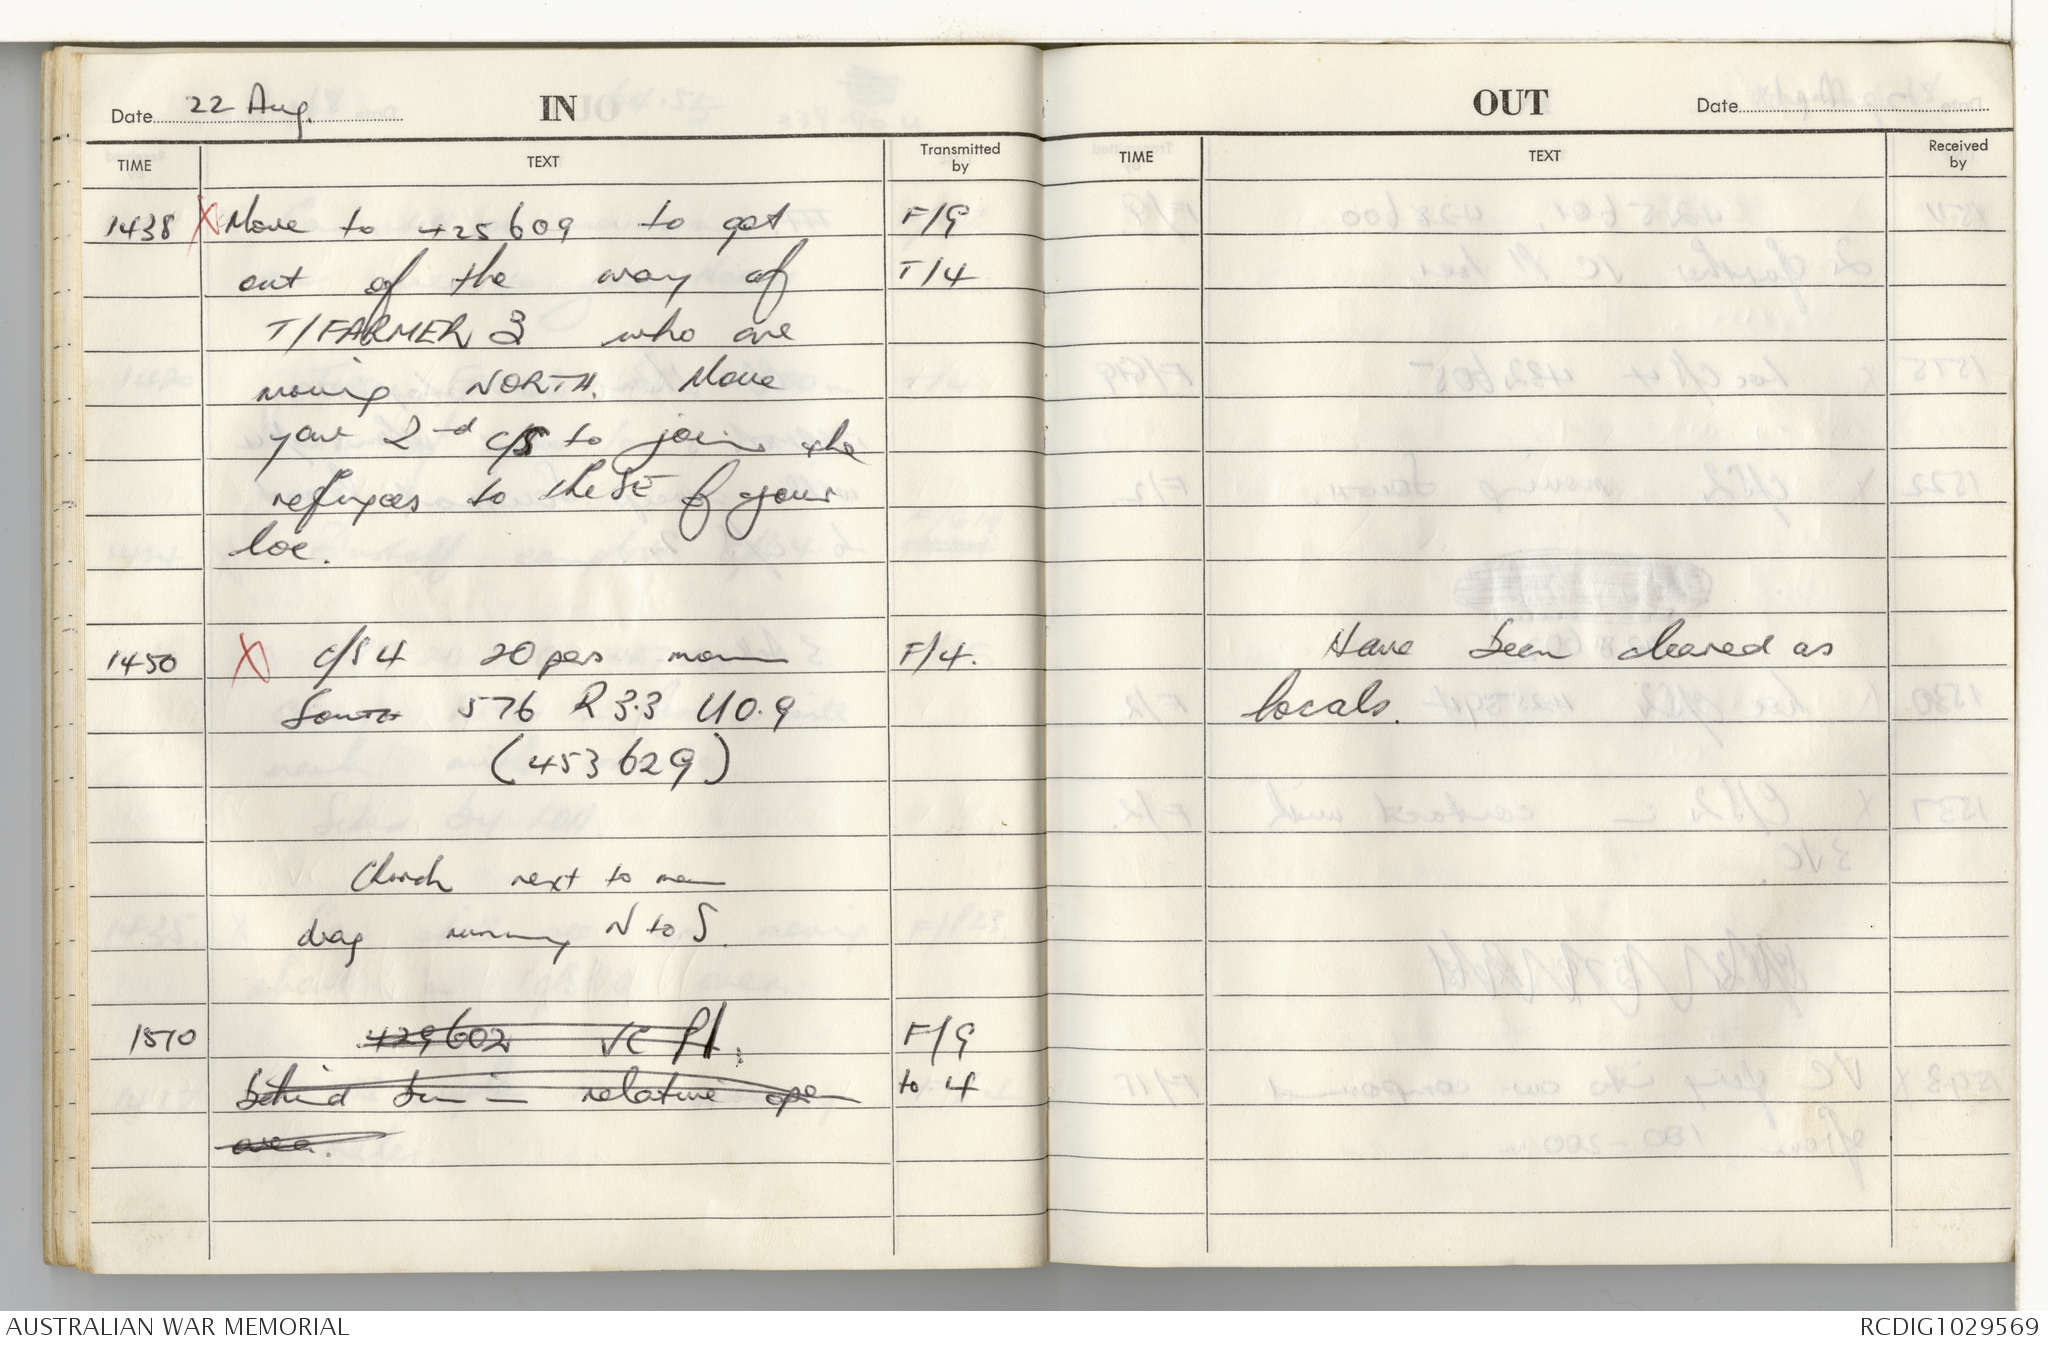 Date 22 Aug. IN
TIME TEXT Transmitted by
1438 X Move to 425609 to get F/9
out of the way of T/4
T/FARMER 3 who are
moving NORTH. Move
your 2nd c/s to join the
refugees to the SE of your
loc.
1450 X c/s 4 20 pers F/4.
South 576 R3.3 U0.9
(453629)
Church next to
running N to S.
1510 429602 VC Pl. F/9
behind in relative open to 4
area.
OUT Date
TIME TEXT Received by
Have been cleared as
locals.
AUSTRALIAN WAR MEMORIAL
RCDIG1029569